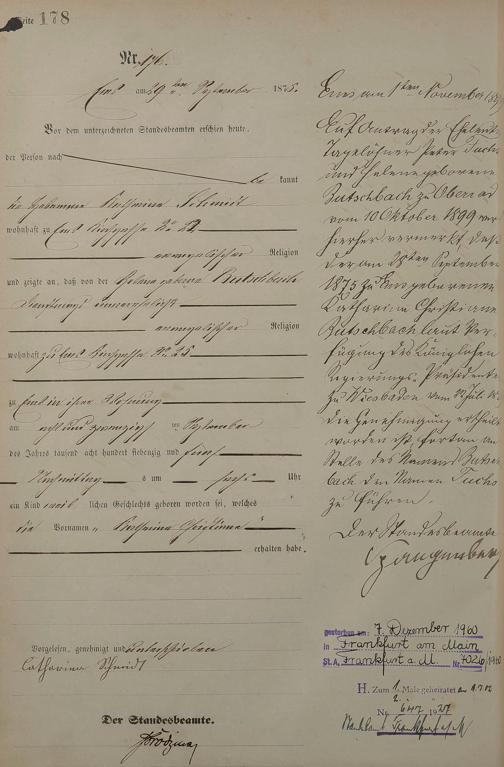 Seite 178
Nr. 176.
Ems am 29 ten September 1875.
Vor dem unterzeichneten Standesbeamten erschien heute,
der Person nach
be kannt
die Hebamme Katharina Schmidt
wohnhaft zu Ems Kirchgasse No 22
evangelischer Religion
und zeigte an, daß von der Helena Butschbach
evangelischer Religion
wohnhaft zu Ems Kirchgasse No 25
zu Ems in ihrer Wohnung
am acht und zwanzigsten September
des Jahres tausend acht hundert siebenzig und fünf
Nachmittags um sechs Uhr
ein Kind weib lichen Geschlechts geboren worden sei, welches
die Vornamen Katharina Christiane
erhalten habe.
Vorgelesen, genehmigt und unterschrieben
Catharina Schmidt
Der Standesbeamte.
Ems am 1sten November 18
Auf Antrag der Eheleute
Tagelöhner Peter Fuchs
und Helene geborene
Butschbach zu Oberrad
vom 10 Oktober 1899 wird
hierher vermerkt, daß
der am 28sten September
1875 zu Ems geborenen
Katharina Christiane
Butschbach laut Ver-
fügung des Königlichen
Regierungs-Präsidenten
zu Wiesbaden vom
die Genehmigung ertheilt
worden ist, fortan an
Stelle des Namens Butsch
bach den Namen Fuchs
zu führen.
Der Standesbeamte
gestorben am: 7. Dezember 1960
in Frankfurt am Main
St. A. Frankfurt a. M. Nr. 7026/1960
H. Zum 1. Male geheiratet am
No 647 1927
Standesamt Frankfurt a/M